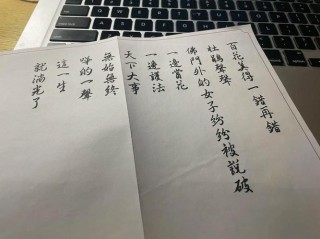 百花美得一錯再錯
杜鵑聲聲
佛門外的女子紛紛被說破
一邊賞花
一邊護法
天下大事
無始無終
咚的一聲
這一生
就滿光了